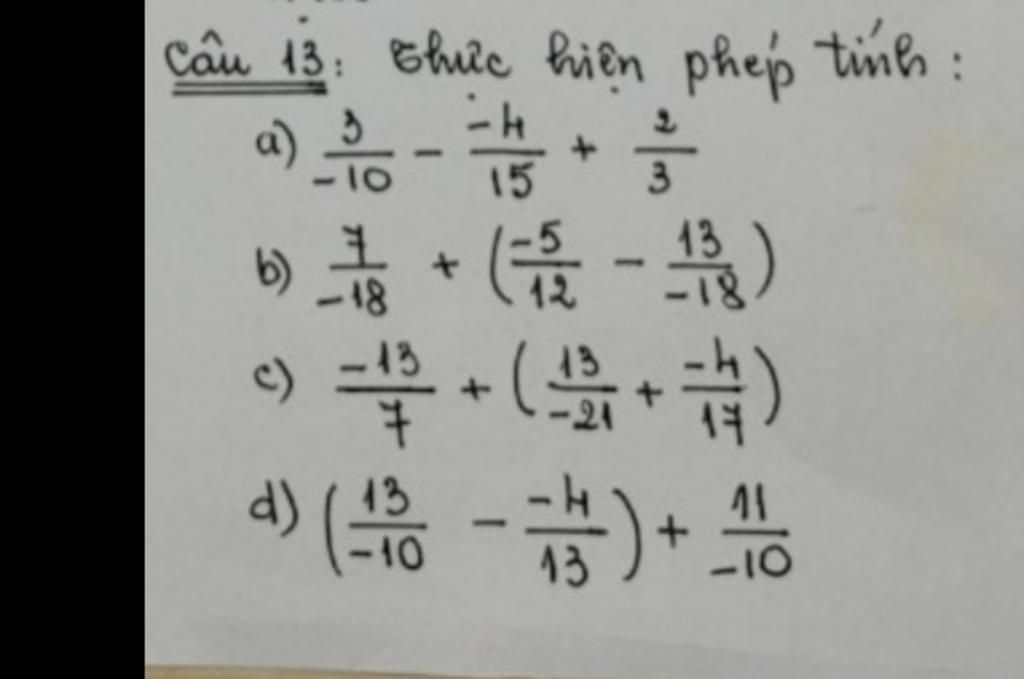 Câu 13: Thực hiện phép tính:
a) 3/-10 - -4/15 + 2/3
b) 7/-18 + (-5/12 - 13/-18)
c) -13/7 + (13/-21 + -4/17)
d) (13/-10 - -4/13) + 11/-10